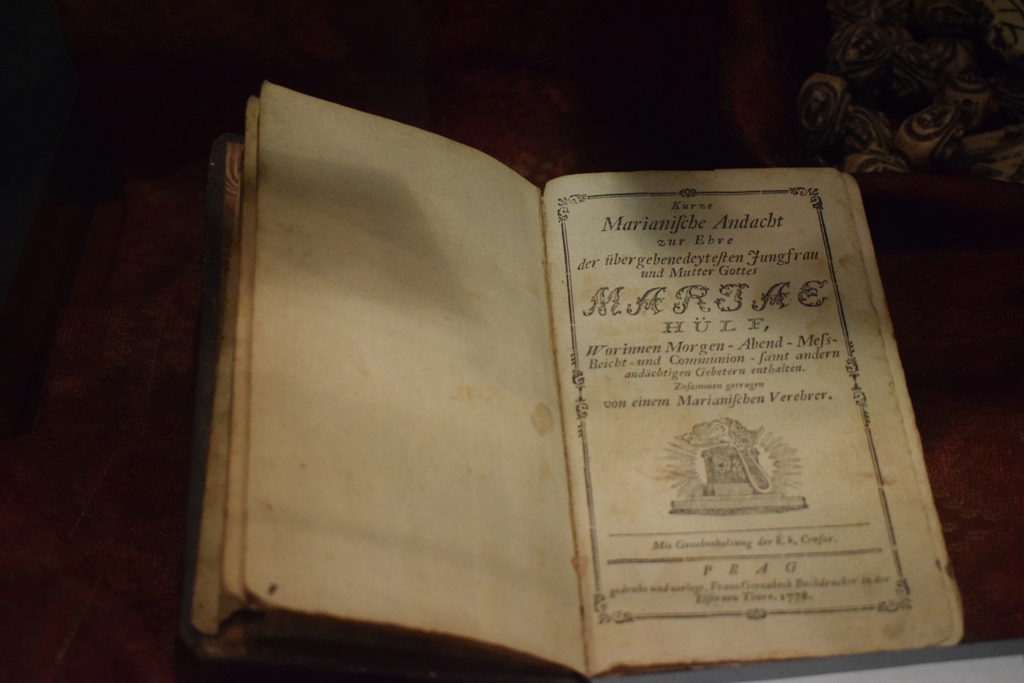 Kurze
Marianiſche Andacht
zur Ehre
der übergebenedeyteſten Jungfrau
und Mutter Gottes
MARIAE
HÜLF,
Worinnen Morgen - Abend - Meſs-
Beicht - und Communion - ſamt andern
andächtigen Gebetern enthalten.
Zuſammen getragen
von einem Marianiſchen Verehrer.
Mit Genehmhaltung der K. k. Cenſur.
PRAG
gedrukt und verlegt, Franz Gerzabeck Buchdrucker in der
Eiſernen Thüre. 1778.